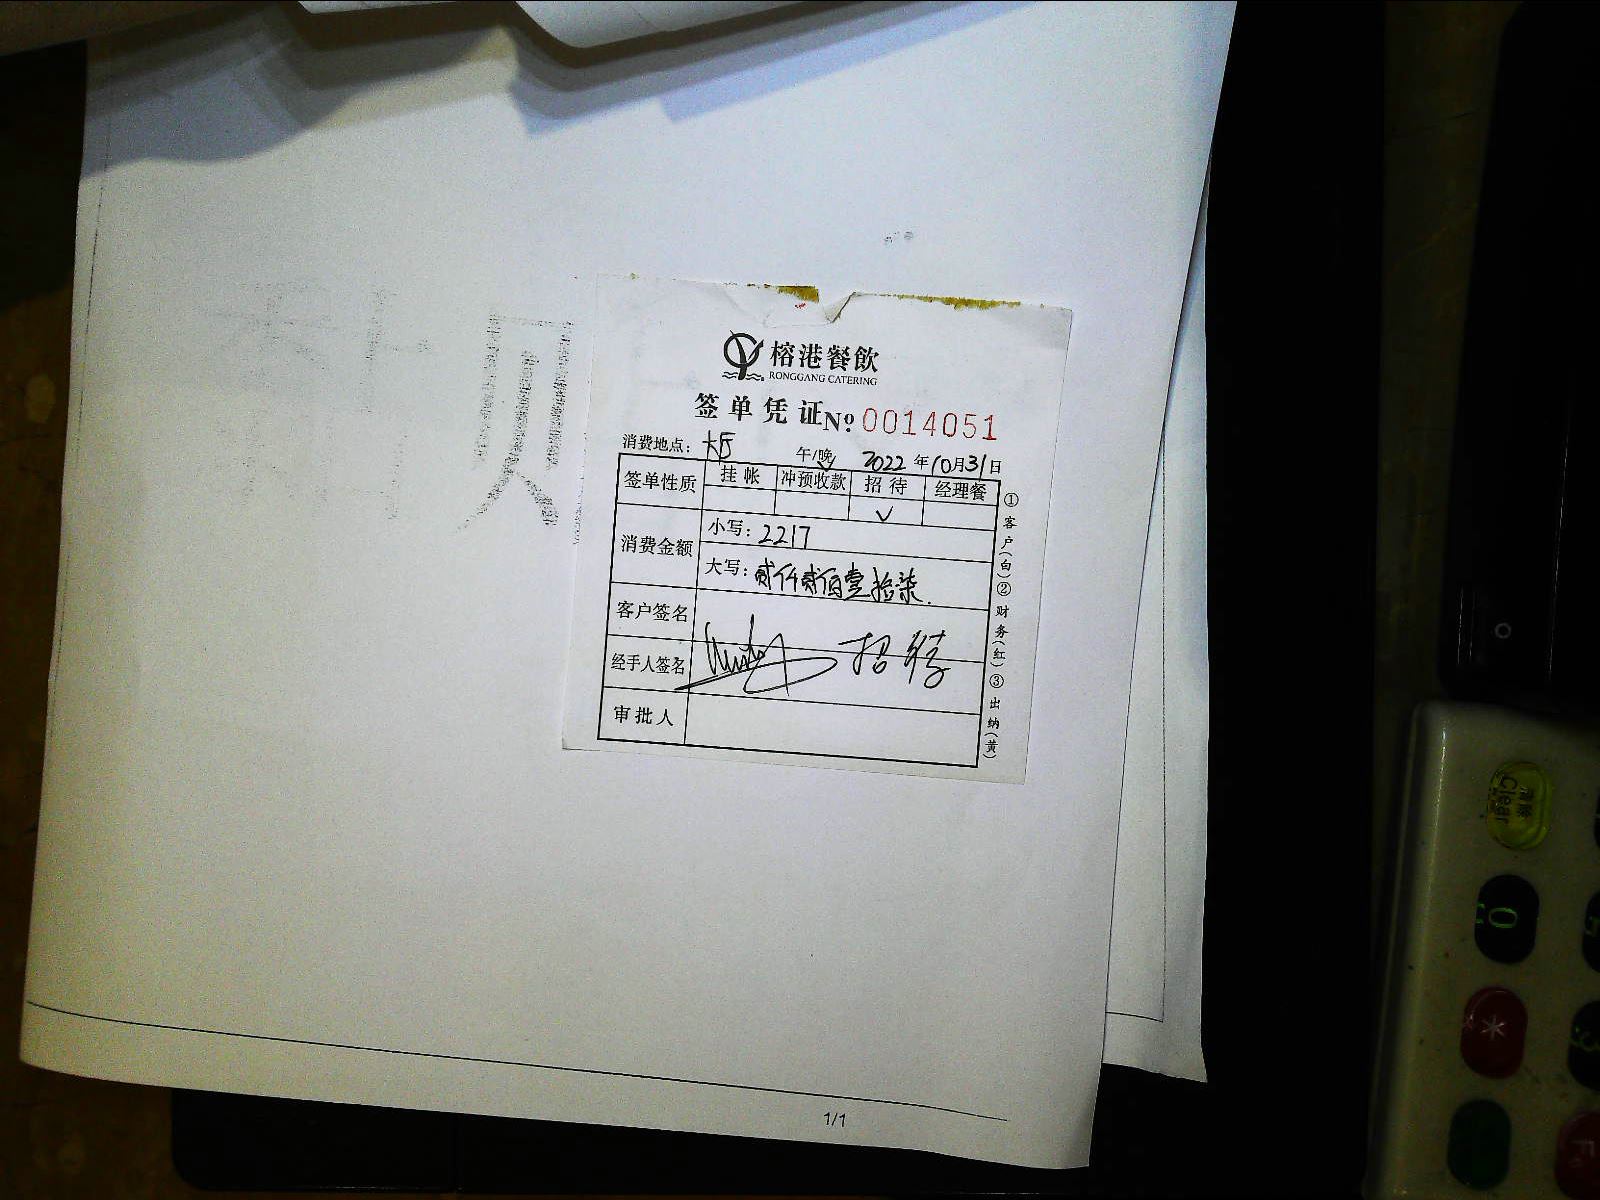 榕港餐飲
RONGGANG CATERING
签单凭证 No. 0014051
消费地点：大厅 午/晚 2022年10月31日
签单性质 挂帐 冲预收款 招待 经理餐
✓
消费金额 小写：2217
大写：贰仟贰佰壹拾柒
客户签名
经手人签名 招待
审批人
①客户(白)②财务(红)③出纳(黄)
1/1
清除
Clear
0
*